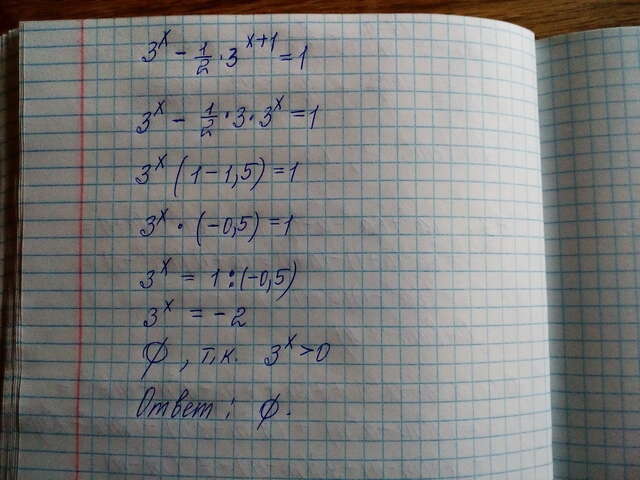 3^x - 1/2 · 3^(x+1) = 1
3^x - 1/2 · 3 · 3^x = 1
3^x (1 - 1,5) = 1
3^x · (-0,5) = 1
3^x = 1 : (-0,5)
3^x = -2
∅, т.к. 3^x > 0
Ответ: ∅.